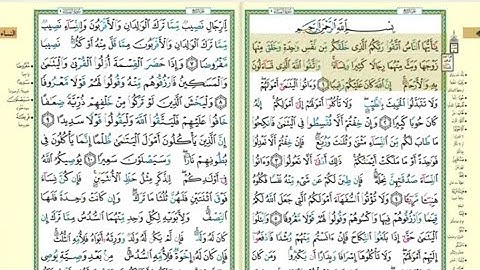 بِسْمِ اللَّهِ الرَّحْمَٰنِ الرَّحِيمِ
يَا أَيُّهَا النَّاسُ اتَّقُوا رَبَّكُمُ الَّذِي خَلَقَكُم مِّن نَّفْسٍ وَاحِدَةٍ وَخَلَقَ مِنْهَا
زَوْجَهَا وَبَثَّ مِنْهُمَا رِجَالًا كَثِيرًا وَنِسَاءً وَاتَّقُوا اللَّهَ الَّذِي تَسَاءَلُونَ
بِهِ وَالْأَرْحَامَ إِنَّ اللَّهَ كَانَ عَلَيْكُمْ رَقِيبًا ١ وَآتُوا الْيَتَامَىٰ أَمْوَالَهُمْ
وَلَا تَتَبَدَّلُوا الْخَبِيثَ بِالطَّيِّبِ وَلَا تَأْكُلُوا أَمْوَالَهُمْ إِلَىٰ أَمْوَالِكُمْ إِنَّهُ
كَانَ حُوبًا كَبِيرًا ٢ وَإِنْ خِفْتُمْ أَلَّا تُقْسِطُوا فِي الْيَتَامَىٰ فَانكِحُوا
مَا طَابَ لَكُم مِّنَ النِّسَاءِ مَثْنَىٰ وَثُلَاثَ وَرُبَاعَ فَإِنْ خِفْتُمْ أَلَّا تَعْدِلُوا
فَوَاحِدَةً أَوْ مَا مَلَكَتْ أَيْمَانُكُمْ ذَٰلِكَ أَدْنَىٰ أَلَّا تَعُولُوا ٣ وَآتُوا
النِّسَاءَ صَدُقَاتِهِنَّ نِحْلَةً فَإِن طِبْنَ لَكُمْ عَن شَيْءٍ مِّنْهُ نَفْسًا
فَكُلُوهُ هَنِيئًا مَّرِيئًا ٤ وَلَا تُؤْتُوا السُّفَهَاءَ أَمْوَالَكُمُ الَّتِي جَعَلَ اللَّهُ لَكُمْ
قِيَامًا وَارْزُقُوهُمْ فِيهَا وَاكْسُوهُمْ وَقُولُوا لَهُمْ قَوْلًا مَّعْرُوفًا ٥
وَابْتَلُوا الْيَتَامَىٰ حَتَّىٰ إِذَا بَلَغُوا النِّكَاحَ فَإِنْ آنَسْتُم مِّنْهُمْ رُشْدًا
فَادْفَعُوا إِلَيْهِمْ أَمْوَالَهُمْ وَلَا تَأْكُلُوهَا إِسْرَافًا وَبِدَارًا أَن يَكْبَرُوا
النساء
لِّلرِّجَالِ نَصِيبٌ مِّمَّا تَرَكَ الْوَالِدَانِ وَالْأَقْرَبُونَ وَلِلنِّسَاءِ نَصِيبٌ
مِّمَّا تَرَكَ الْوَالِدَانِ وَالْأَقْرَبُونَ مِمَّا قَلَّ مِنْهُ أَوْ كَثُرَ نَصِيبًا
مَّفْرُوضًا ٧ وَإِذَا حَضَرَ الْقِسْمَةَ أُولُو الْقُرْبَىٰ وَالْيَتَامَىٰ
وَالْمَسَاكِينُ فَارْزُقُوهُم مِّنْهُ وَقُولُوا لَهُمْ قَوْلًا مَّعْرُوفًا
٨ وَلْيَخْشَ الَّذِينَ لَوْ تَرَكُوا مِنْ خَلْفِهِمْ ذُرِّيَّةً ضِعَافًا
خَافُوا عَلَيْهِمْ فَلْيَتَّقُوا اللَّهَ وَلْيَقُولُوا قَوْلًا سَدِيدًا ٩
إِنَّ الَّذِينَ يَأْكُلُونَ أَمْوَالَ الْيَتَامَىٰ ظُلْمًا إِنَّمَا يَأْكُلُونَ فِي
بُطُونِهِمْ نَارًا وَسَيَصْلَوْنَ سَعِيرًا ١٠ يُوصِيكُمُ اللَّهُ
فِي أَوْلَادِكُمْ لِلذَّكَرِ مِثْلُ حَظِّ الْأُنثَيَيْنِ فَإِن كُنَّ نِسَاءً
فَوْقَ اثْنَتَيْنِ فَلَهُنَّ ثُلُثَا مَا تَرَكَ وَإِن كَانَتْ وَاحِدَةً فَلَهَا
النِّصْفُ وَلِأَبَوَيْهِ لِكُلِّ وَاحِدٍ مِّنْهُمَا السُّدُسُ مِمَّا تَرَكَ إِن
كَانَ لَهُ وَلَدٌ فَإِن لَّمْ يَكُن لَّهُ وَلَدٌ وَوَرِثَهُ أَبَوَاهُ فَلِأُمِّهِ الثُّلُثُ
فَإِن كَانَ لَهُ إِخْوَةٌ فَلِأُمِّهِ السُّدُسُ مِن بَعْدِ وَصِيَّةٍ يُوصِي